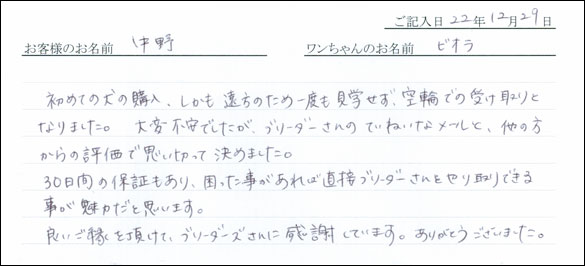 ご記入日 22年12月29日
お客様のお名前 中野 ワンちゃんのお名前 ビオラ
初めての犬の購入、しかも遠方のため一度も見学せず、空輸での受け取りと
なりました。大変不安でしたが、ブリーダーさんのていねいなメールと、他の方
からの評価で思い切って決めました。
30日間の保証もあり、困った事があれば直接ブリーダーさんとやり取りできる
事が魅力だと思います。
良いご縁を頂けて、ブリーダーズさんに感謝しています。ありがとうございました。